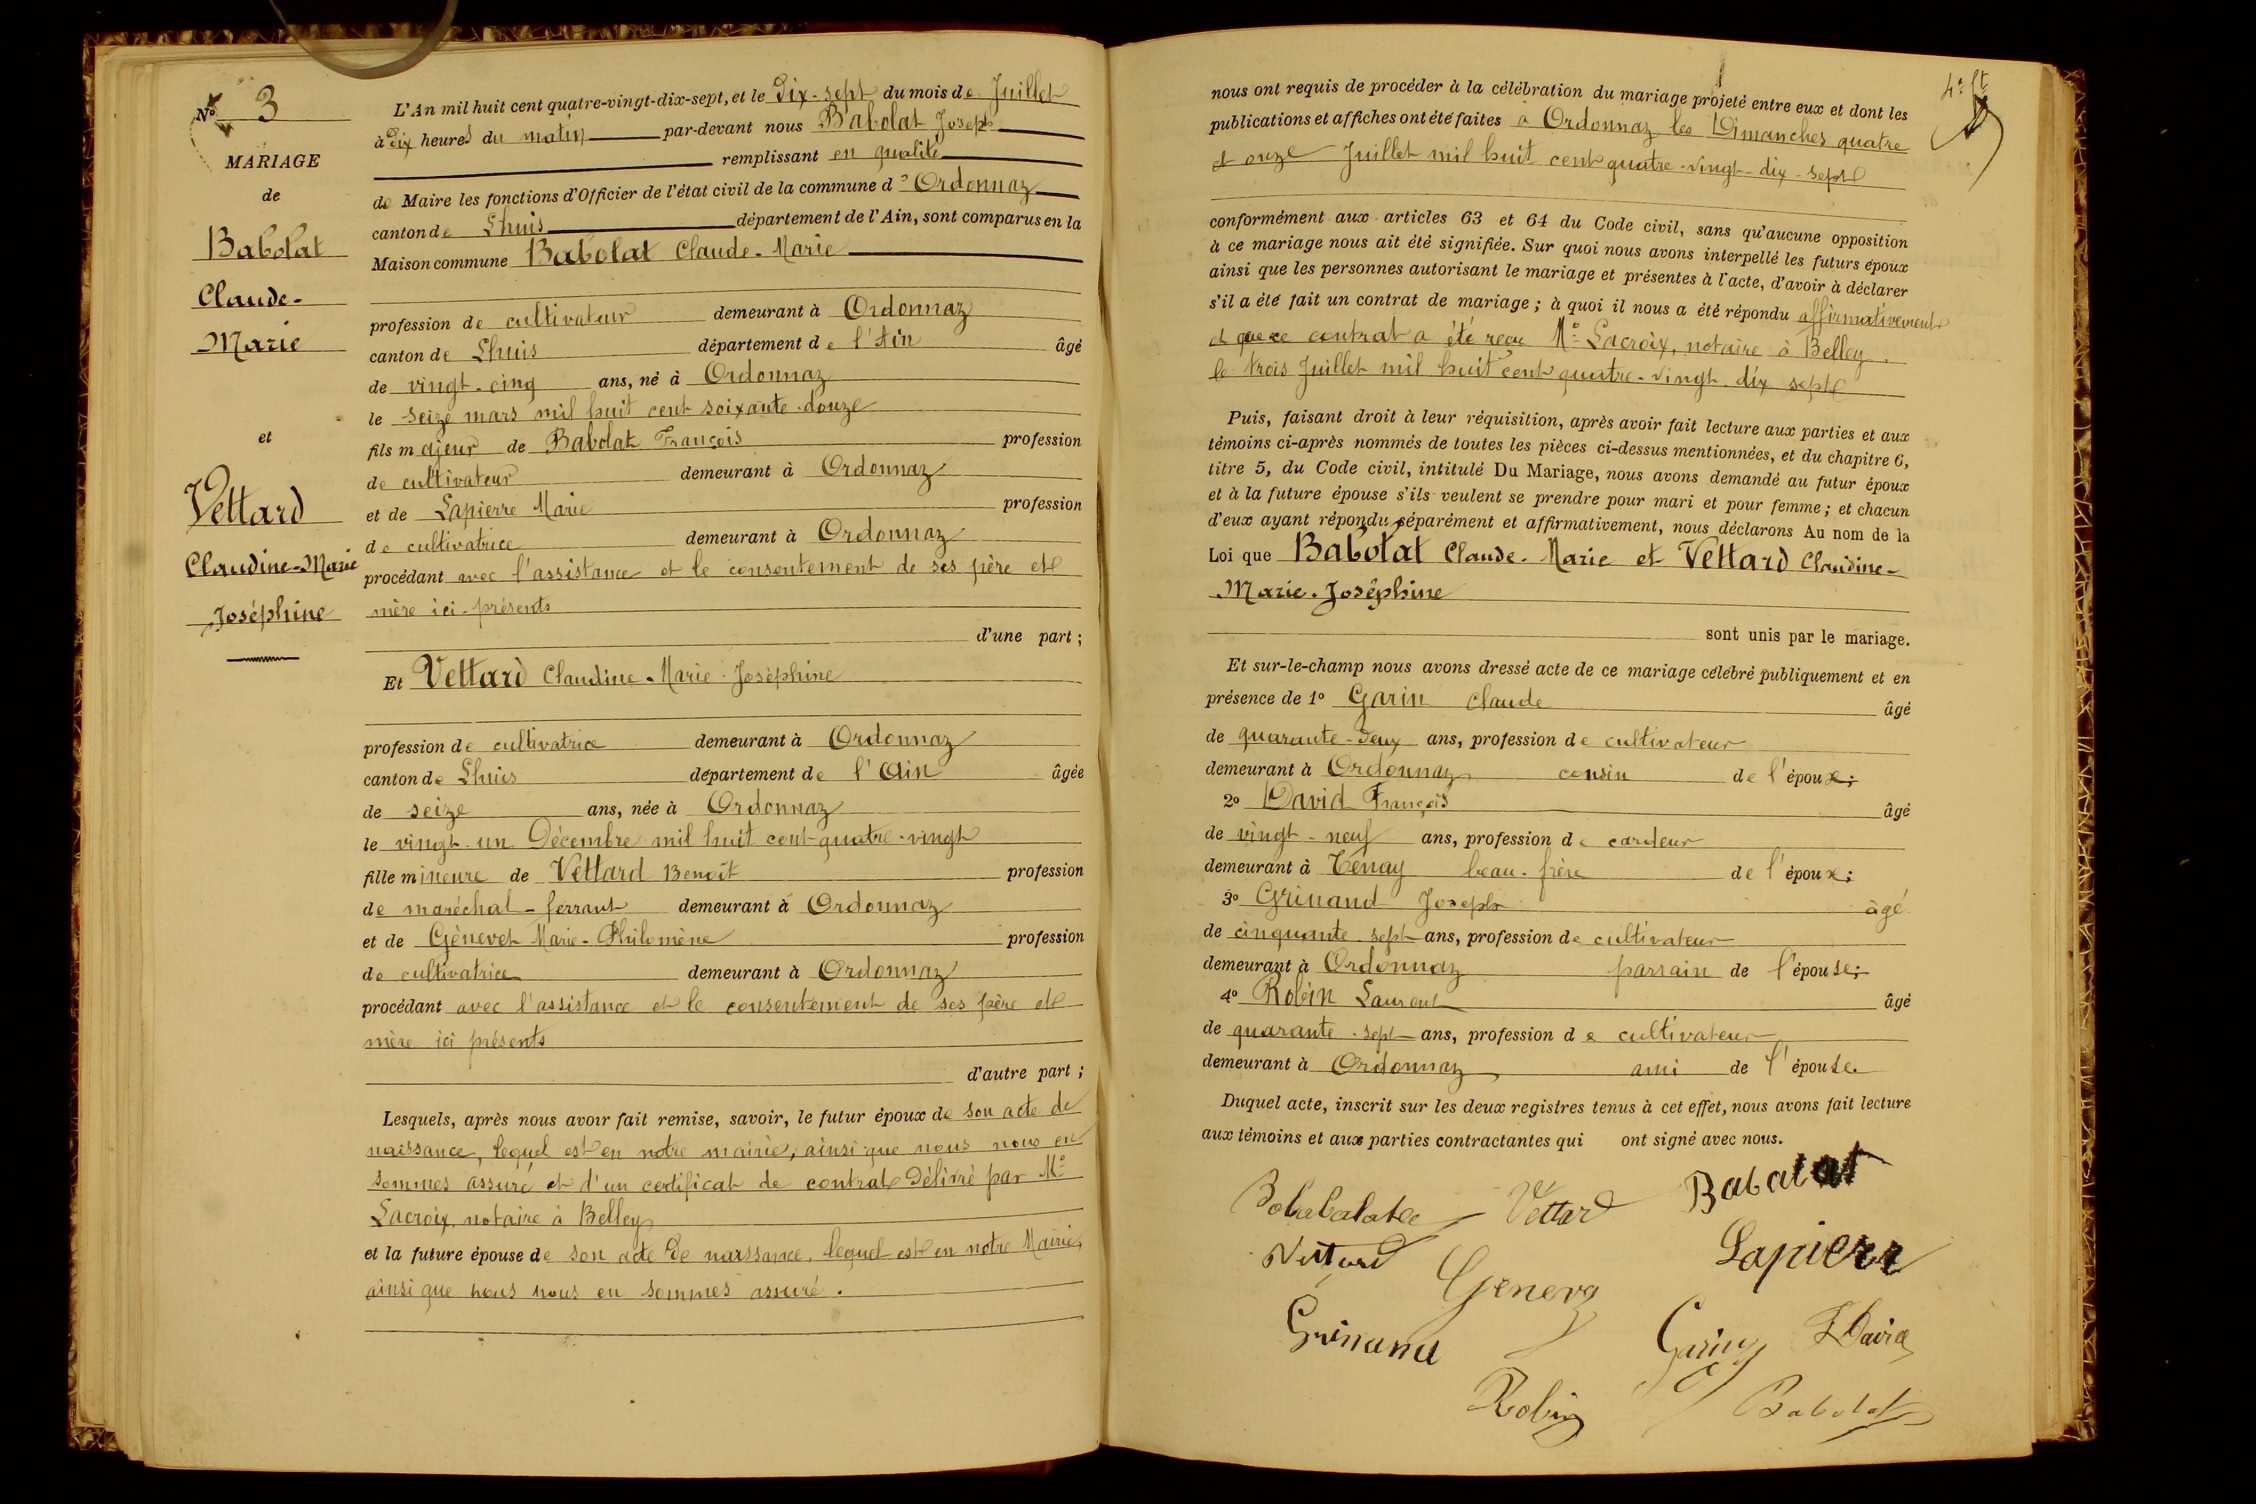 No 3
MARIAGE
de
Babolat
Claude-
Marie
et
Vettard
Claudine-Marie
Joséphine
L'An mil huit cent quatre-vingt-dix-sept, et le dix-sept du mois de Juillet
à dix heures du matin par-devant nous Babolat Joseph
remplissant en qualité
de Maire les fonctions d'Officier de l'état civil de la commune d' Ordonnaz
canton de Lhuis département de l'Ain, sont comparus en la
Maison commune Babolat Claude-Marie
profession de cultivateur demeurant à Ordonnaz
canton de Lhuis département de l'Ain âgé
de vingt-cinq ans, né à Ordonnaz
le seize mars mil huit cent soixante-douze
fils majeur de Babolat François profession
de cultivateur demeurant à Ordonnaz
et de Lapierre Marie profession
de cultivatrice demeurant à Ordonnaz
procédant avec l'assistance et le consentement de ses père et
mère ici-présents
d'une part ;
Et Vettard Claudine-Marie-Joséphine
profession de cultivatrice demeurant à Ordonnaz
canton de Lhuis département de l'Ain âgée
de seize ans, née à Ordonnaz
le vingt-un Décembre mil huit cent quatre-vingt
fille mineure de Vettard Benoît profession
de maréchal-ferrant demeurant à Ordonnaz
et de Génevet Marie-Philomène profession
de cultivatrice demeurant à Ordonnaz
procédant avec l'assistance et le consentement de ses père et
mère ici présents
d'autre part ;
Lesquels, après nous avoir fait remise, savoir, le futur époux de son acte de
naissance, lequel est en notre mairie, ainsi que nous nous en
sommes assuré et d'un certificat de contrat délivré par Me
Lacroix, notaire à Belley
et la future épouse de son acte de naissance, lequel est en notre Mairie,
ainsi que nous nous en sommes assuré.
nous ont requis de procéder à la célébration du mariage projeté entre eux et dont les
publications et affiches ont été faites à Ordonnaz les Dimanches quatre
et onze Juillet mil huit cent quatre-vingt-dix-sept
conformément aux articles 63 et 64 du Code civil, sans qu'aucune opposition
à ce mariage nous ait été signifiée. Sur quoi nous avons interpellé les futurs époux
ainsi que les personnes autorisant le mariage et présentes à l'acte, d'avoir à déclarer
s'il a été fait un contrat de mariage ; à quoi il nous a été répondu affirmativement
et que ce contrat a été reçu Me Lacroix, notaire à Belley
le trois Juillet mil huit cent quatre-vingt-dix sept
Puis, faisant droit à leur réquisition, après avoir fait lecture aux parties et aux
témoins ci-après nommés de toutes les pièces ci-dessus mentionnées, et du chapitre 6,
titre 5, du Code civil, intitulé Du Mariage, nous avons demandé au futur époux
et à la future épouse s'ils veulent se prendre pour mari et pour femme ; et chacun
d'eux ayant répondu séparément et affirmativement, nous déclarons Au nom de la
Loi que Babolat Claude-Marie et Vettard Claudine-
Marie-Joséphine
sont unis par le mariage.
Et sur-le-champ nous avons dressé acte de ce mariage célébré publiquement et en
présence de 1o Garin Claude âgé
de quarante-deux ans, profession de cultivateur
demeurant à Ordonnaz cousin de l'époux ;
2o David François âgé
de vingt-neuf ans, profession de cardeur
demeurant à Tenay beau-frère de l'époux ;
3o Grinand Joseph âgé
de cinquante-sept ans, profession de cultivateur
demeurant à Ordonnaz parrain de l'épouse ;
4o Robin Laurent âgé
de quarante-sept ans, profession de cultivateur
demeurant à Ordonnaz ami de l'épouse.
Duquel acte, inscrit sur les deux registres tenus à cet effet, nous avons fait lecture
aux témoins et aux parties contractantes qui ont signé avec nous.
Vettard Babalat
Vettard Lapierr
Grinand Garin F David
Robin Babolat